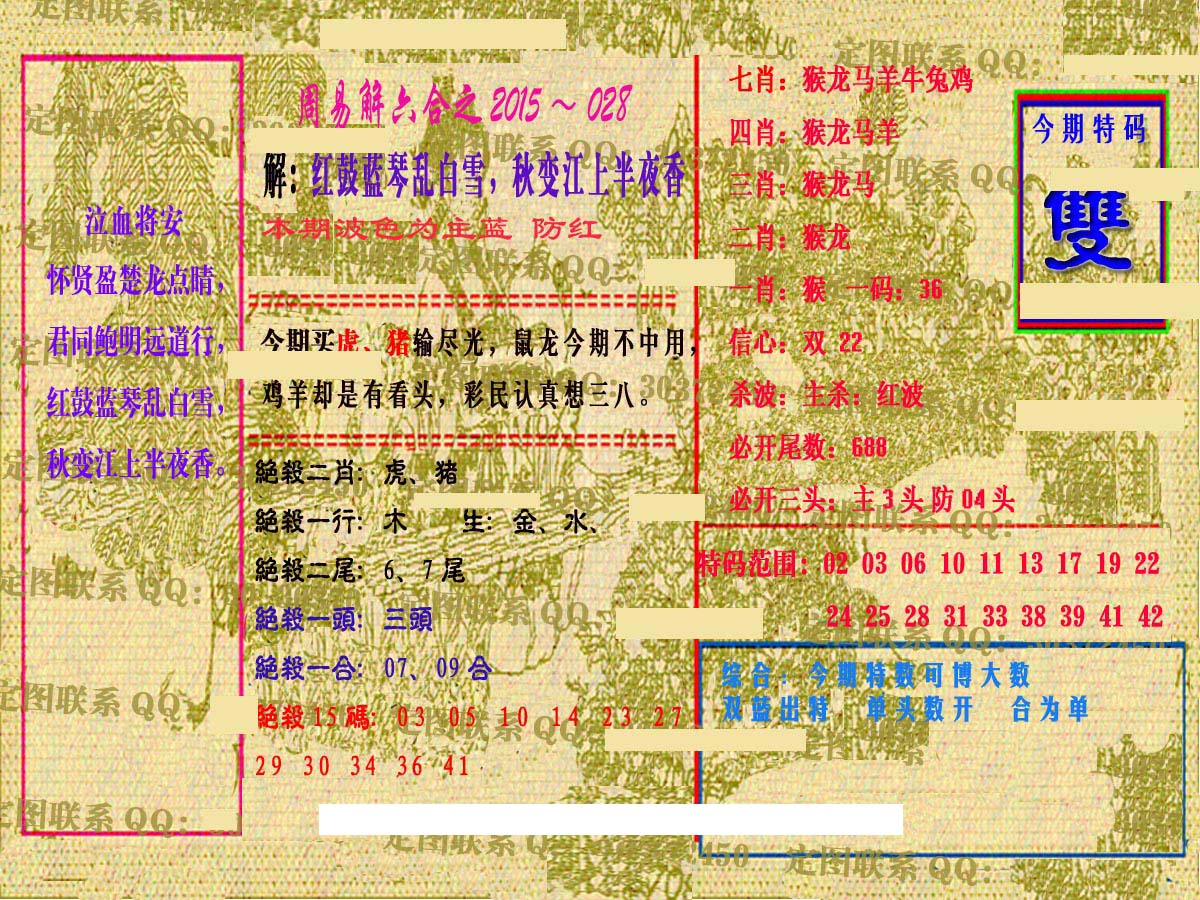 泣血将安
怀贤盈楚龙点睛，
君同鲍明远道行，
红鼓蓝琴乱白雪，
秋变江上半夜香。
周易解六合之2015～028
解：红鼓蓝琴乱白雪，秋变江上半夜香
本期波色为主蓝 防红
今期买虎、猪输尽光，鼠龙今期不中用，
鸡羊却是有看头，彩民认真想三八。
絕殺二肖：虎、猪
絕殺一行：木 生：金、水、
絕殺二尾：6、7尾
絕殺一頭：三頭
絕殺一合：07、09合
絕殺15碼：03 05 10 14 23 27
29 30 34 36 41
七肖：猴龙马羊牛兔鸡
四肖：猴龙马羊
三肖：猴龙马
二肖：猴龙
一肖：猴 一码：36
信心：双 22
杀波：主杀：红波
必开尾数：688
必开三头：主3头防04头
今期特码
雙
特码范围：02 03 06 10 11 13 17 19 22
24 25 28 31 33 38 39 41 42
综合：今期特数可博大数
双蓝出特 单头数开 合为单
定图联系QQ：